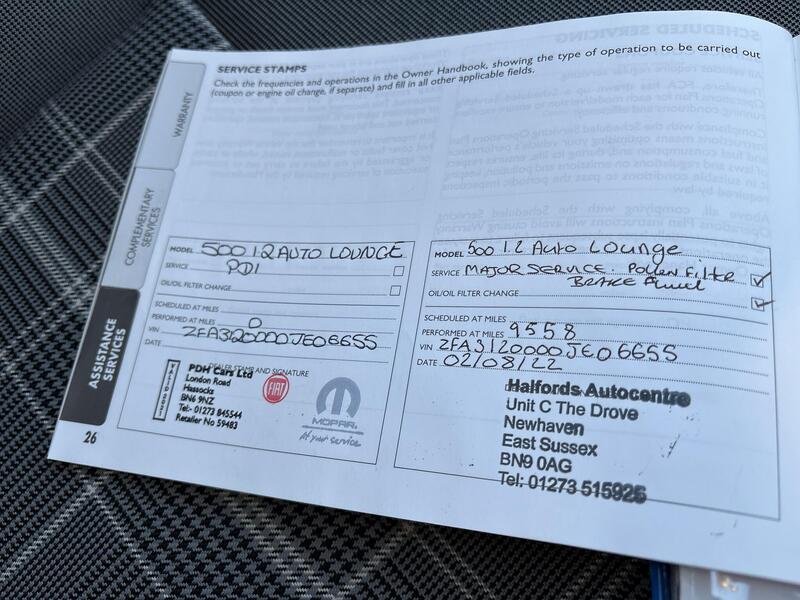 SERVICE STAMPS
Check the frequencies and operations in the Owner Handbook, showing the type of operation to be carried out
(coupon or engine oil change, if separate) and fill in all other applicable fields.
WARRANTY
COMPLEMENTARY
SERVICES
ASSISTANCE
SERVICES
MODEL 500 1.2 AUTO LOUNGE
SERVICE PDI
OIL/OIL FILTER CHANGE
SCHEDULED AT MILES
PERFORMED AT MILES 0
VIN ZFA3120000JE06655
DATE
DEALER STAMP AND SIGNATURE
PDH Cars Ltd
London Road
Hassocks
BN6 9NZ
Tel:- 01273 845544
Retailer No 59483
FIAT
MOPAR
At your service
26
MODEL 500 1.2 Auto Lounge
SERVICE MAJOR SERVICE. Pollen Filter
BRAKE Fluid
OIL/OIL FILTER CHANGE
SCHEDULED AT MILES
PERFORMED AT MILES 9558
VIN ZFA3120000JE06655
DATE 02/08/22
Halfords Autocentre
Unit C The Drove
Newhaven
East Sussex
BN9 0AG
Tel: 01273 515925